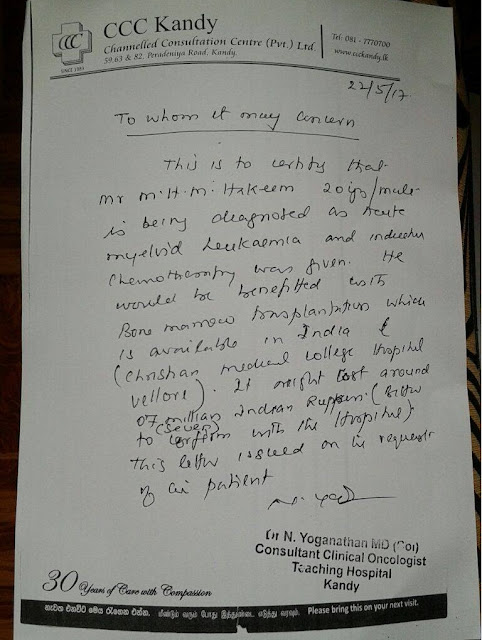 CCC Kandy
Channelled Consultation Centre (Pvt.) Ltd.
59.63 & 82, Peradeniya Road, Kandy.
CCC
SINCE 1983
Tel: 081 - 7770700
www.ccckandy.lk
22/5/17
To whom it may concern
This is to certify that
Mr M.H.M. Hakeem 20 yrs/male
is being diagnosed as Acute
myeloid Leukaemia and induction
Chemotherapy was given. He
would be benefitted with
Bone marrow transplantation which
is available in India &
(Christian medical college Hospital
Vellore). It might cost around
07 million Indian Rupees. (Better
(Seven)
to confirm with the Hospital)
This letter issued on the request
of the patient
Dr N. Yoganathan MD (Col)
Consultant Clinical Oncologist
Teaching Hospital
Kandy
30 Years of Care with Compassion
නැවත එනවිට මෙය රැගෙන එන්න. மீண்டும் வரும் போது இத்துண்டை எடுத்து வரவும். Please bring this on your next visit.